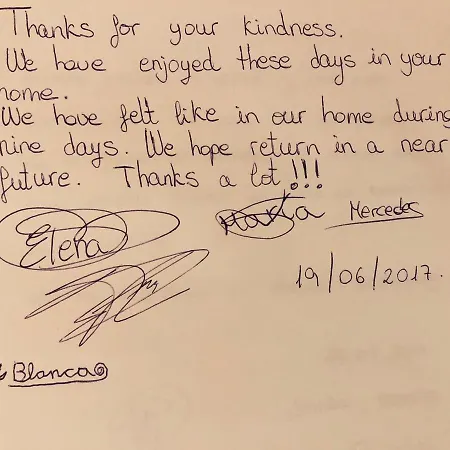 Thanks for your kindness.
We have enjoyed these days in your
home.
We have felt like in our home during
nine days. We hope return in a near
future. Thanks a lot!!!
Elena
María Mercedes
19/06/2017.
Blanca